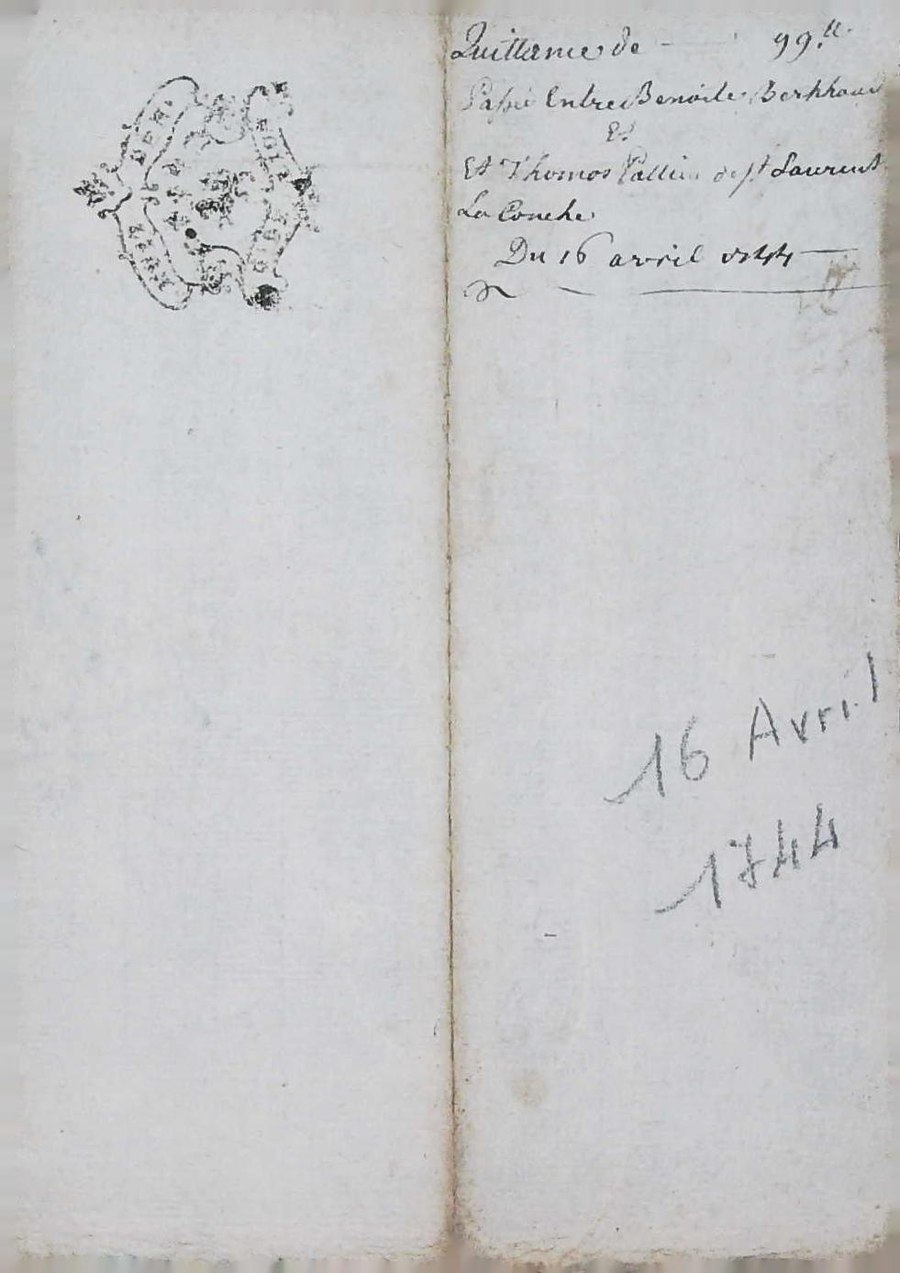 Quittance de - 99.ll
Passé Entre Benoite
Et
Et Thomas de st Laurent
La Conche
Du 16 avril 1744
16 Avril
1744